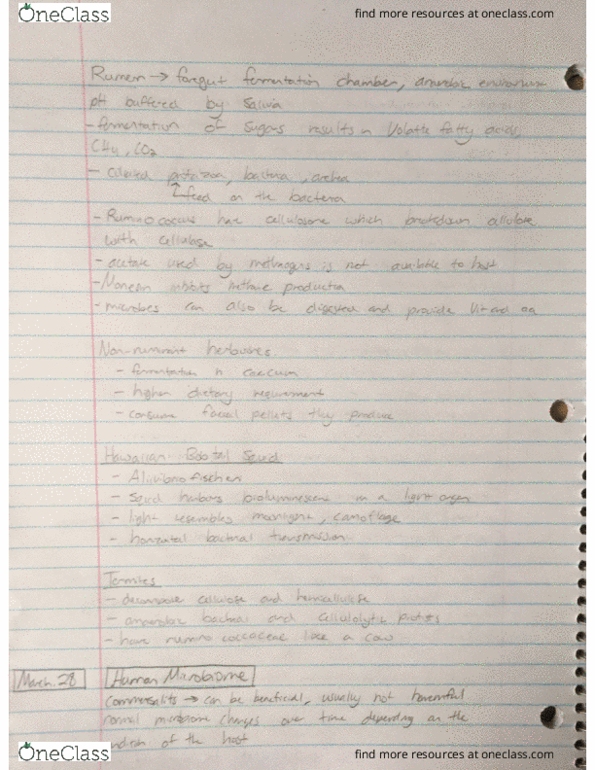 OneClass
find more resources at oneclass.com
Rumen → foregut fermentation chamber, anaerobic environment
pH buffered by Saliva
- fermentation of sugars results in Volatile fatty acids,
CH4, CO2
- Ciliated protozoan, bacteria, archea
feed on the bacteria
- Ruminococcus have cellulosome which breakdown cellulose
with cellulase
- acetate used by methnogens is not available to host
- inhibits methane production
- microbes can also be digested and provide Vit and aa
Non-ruminant herbivores
- fermentation in caecum
- higher dietary requirement
- consume faecal pellets they produce
Hawaiian Bobtail Squid
- Aliivibrio fischeri
- Squid harbours bioluminescene in a light organ
- light resembles moonlight, camoflage
- horizontal bacterial transmission
Termites
- decompose cellulose and hemicellulose
- anaerobic bacteria and cellulolytic protists
- have like a cow
March. 28
Human Microbiome
→ can be beneficial, usually not harmful
normal microbiome changes over time depending on the
condition of the host
OneClass
find more resources at oneclass.com